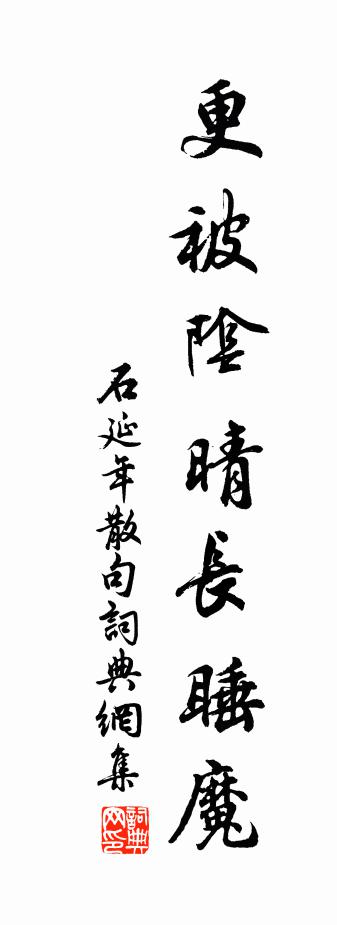 更被陰晴長睡魔
石延年散句詞典網集
詞典网印